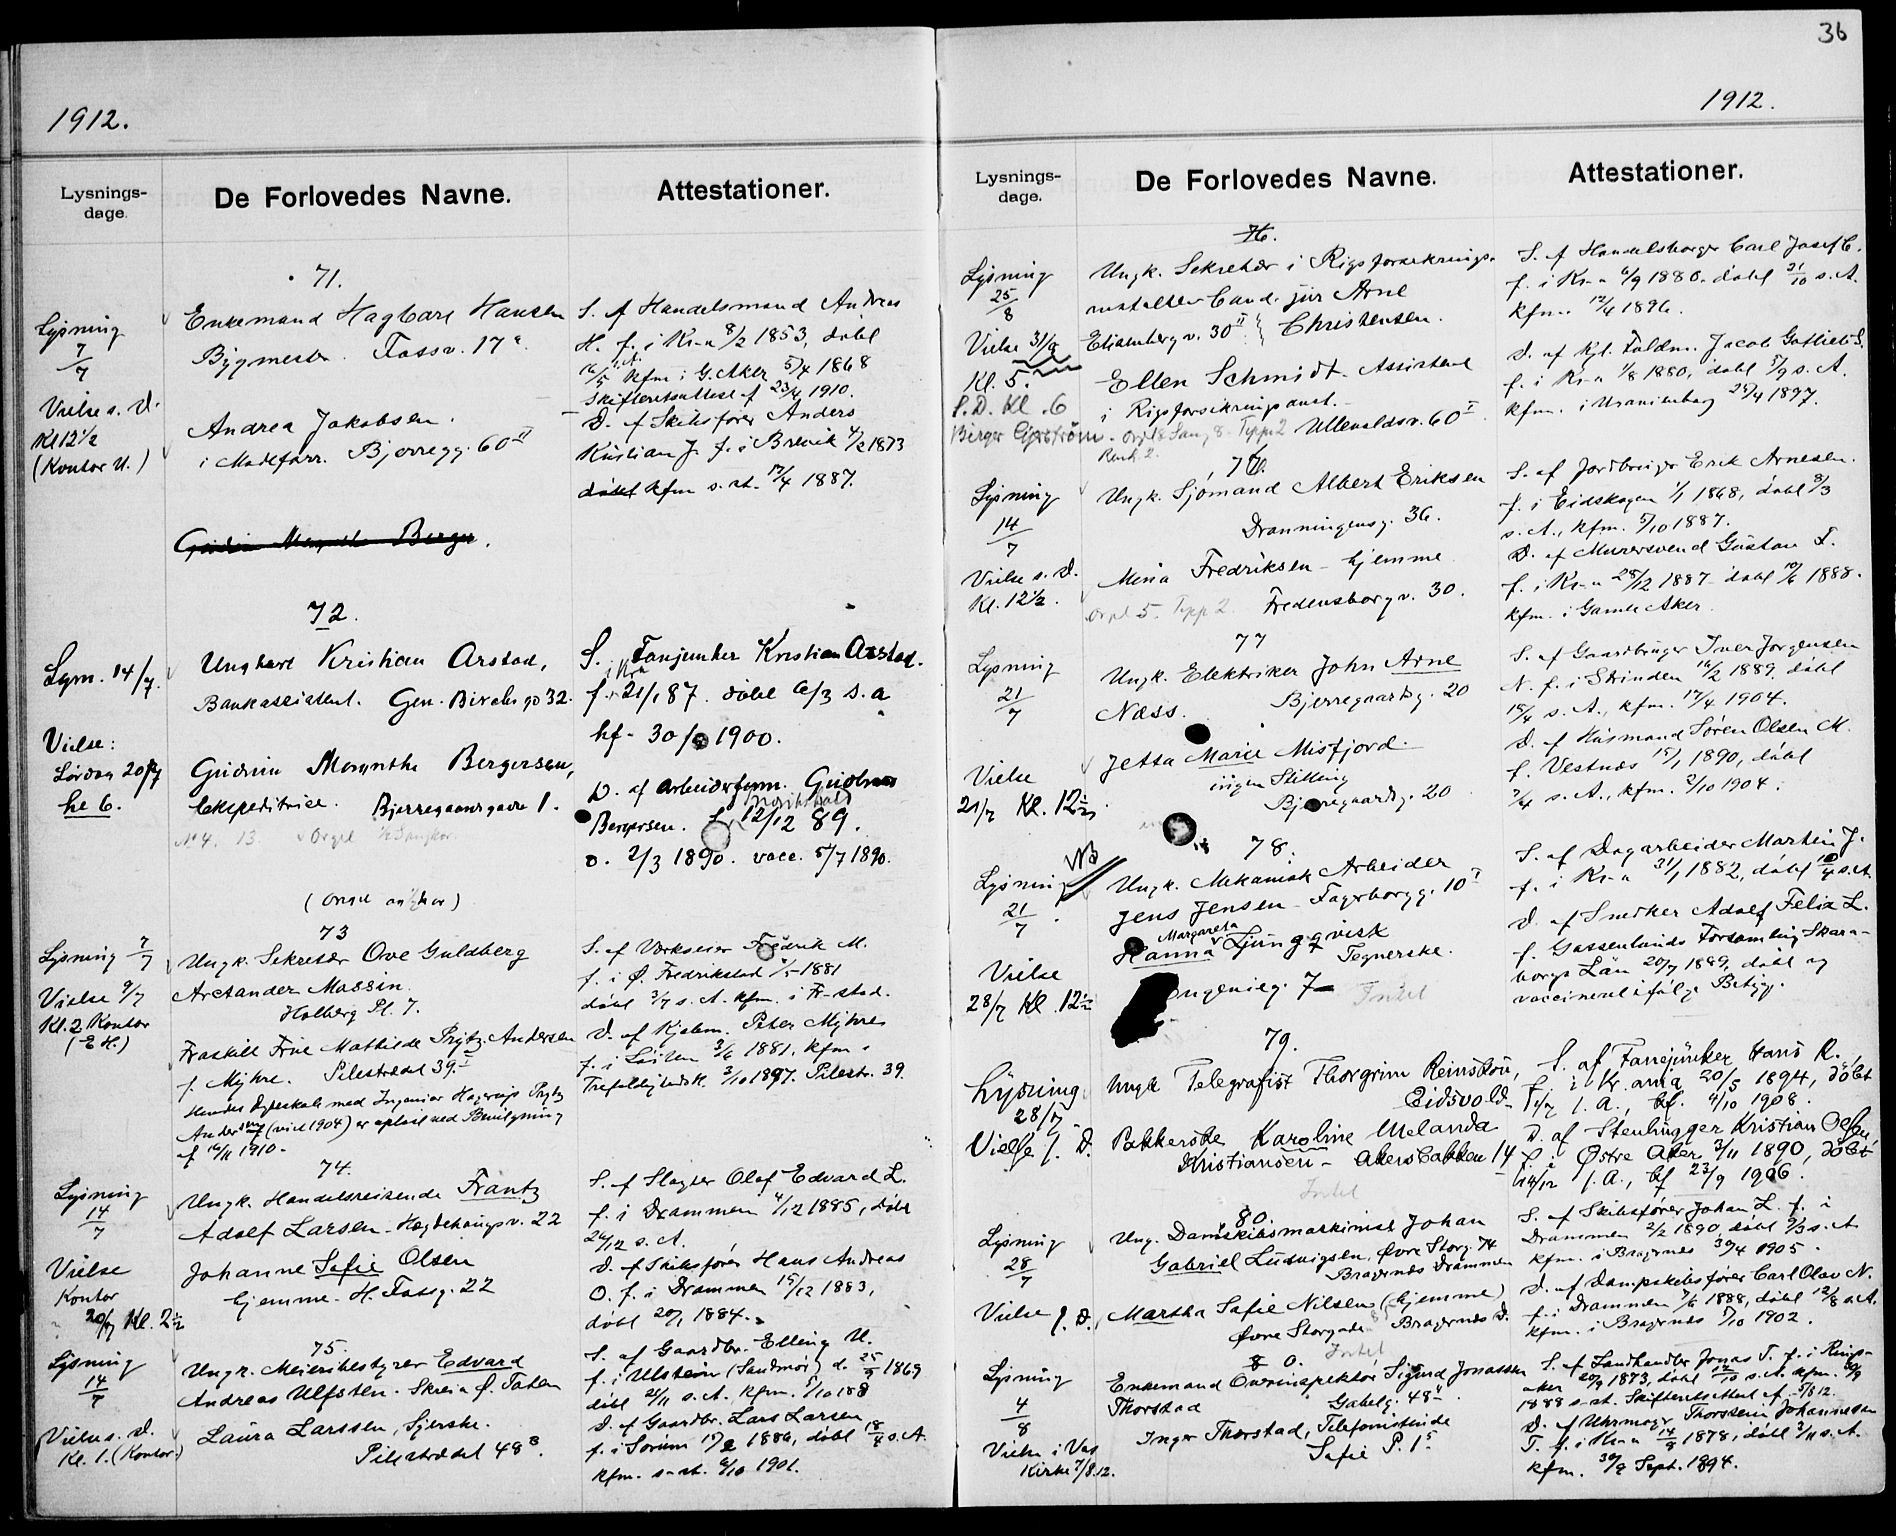 36
1912.
Lysnings-
dage.
De Forlovedes Navne.
Attestationer.
71.
Lysning
7/7
Vielse s. D.
Kl 12 1/2
(Kontor U.)
Enkemand Hagbart Hansen
Bygmester. Fossv. 17
Andrea Jakobsen.
i Modeforr. Bjerregg. 60 II
S. af Handelsmand Andreas
H. f. i Kr-a 8/2 1853, døbt
16/5 s. A. kfm i G. Aker 5/4 1868
Skifteretsattest af 23/4 1910.
D. af Skibsfører Anders
Kristian J. f. i Brevik 4/2 1873
døbt kfm s. st. 17/4 1887.
72.
Lysn. 14/7.
Vielse:
Lørdag 20/7
kl 6.
Ungkarl Kristian Arstad,
Bankassistent. Gen. Birchs gd 32.
Gudrun Bergersen,
Ekspeditrice. Bjerregaardsgade 1.
No 4. 13. Orgel
S. Fanejunker Kristian Arstad.
f. i Kra 21/1 87. døbt 6/3 s. a
kf. 30/9 1900.
D. af Arbeidsform. Gudbrand
Bergersen. f. 12/12 89.
d. 2/3 1890. vacc. 5/7 1890.
73
Lysning 7/7
Vielse 9/7
Kl. 2 Kontor
(E H.)
Ungk. Sekretær Ove Guldberg
Arctander Massin.
Holberg Pl. 7.
Fraskilt Frue Mathilde Prytz Andersen
f. Myhre. Pilestrædet 39 I
Hendes Ægteskab med Ingeniør Hagerup Prytz
Andersen (viet 1904) er opløst ved Bevilgning
af 16/11 1910.
S. af Værkseier Fredrik M.
f. i Ø. Fredrikstad 1/5 1881
døbt 3/7 s. A. kfm. i Fr-stad.
D. af Kjøbm. Peter Myhre
f. i Løiten 3/6 1881. kfm i
Trefoldighedsk. 3/10 1897. Pilestr. 39.
74.
Lysning
14/7
Vielse
Kontor
20/7 Kl. 2 1/2
Ungk. Handelsreisende Frantz
Adolf Larsen. Hegdehaugsv. 22
Johanne Sofie Olsen
hjemme. H. Fossg. 22
S. af Slagter Olaf Edvard L.
f. i Drammen 4/12 1885, døbt
26/12 s. A.
D. af Skibsfører Hans Andreas
O. f. i Drammen 15/12 1883,
døbt 20/1 1884.
75.
Lysning
14/7
Vielse s. D.
Kl. 1. (Kontor)
Ungk. Meieribestyrer Edvard
Andreas Ulfsten. Skreia Ø. Toten
Laura Larssen, Syerske.
Pilestrædet 48 3.
S. af Gaardbr. Elling U.
f. i Ulstein (Søndmør) d. 25/9 1869
døbt 21/11 s. A. kfm. 5/10 188
D. af Gaardbr. Lars Larsen
f. i Sørum 17/2 1886, døbt 18/4 s. A.
kfm. s. st. 6/10 1901.
1912.
Lysnings-
dage.
De Forlovedes Navne.
Attestationer.
76.
Lysning
25/8
Vielse 31/8
Kl. 5.
S. D. Kl. 6
Ungk. Sekretær i Rigsforsikrings-
anstalten Cand. jur Arne
Eilambergv. 30 II Christensen.
Ellen Schmidt. Assistent
i Rigsforsikringsanst.
Ullevoldsv. 60 I
S. af Handelsborger Carl Josef C.
f. i Kr-a 6/9 1880. døbt 31/10 s. A.
kfm. 12/4 1896.
D. af Kgl. Fuldm. Jacob Gotlieb S.
f. i Kr-a 1/8 1880, døbt 5/9 s. A.
kfm. i Uranienborg 25/4 1897.
76.
Lysning
14/7
Vielse s. D.
Kl. 12 1/2.
Ungk. Sjømand Albert Eriksen
Dronningensg. 36.
Mina Fredriksen - hjemme
Orgel 5. Tepp 2. Fredensborgv. 30.
S. af Jordbruger Erik Arnesen.
f. i Eidskogen 1/1 1868, døbt 8/3
s. A., kfm. 5/10 1887.
D. af Murersvend Gustav F.
f. i Kr-a 28/12 1887 døbt 10/6 1888.
kfm. i Gamle Aker.
77
Lysning
21/7
Vielse
21/7 Kl. 12 1/2
Ungk. Elektriker John Arne
Næss. Bjerregaardsg. 20
Jetta Marie Misfjord.
ingen Stilling
Bjerregaardsg. 20
S. af Gaardbruger Iver Jørgensen
N. f. i Strinden 16/2 1889, døbt
15/4 s. A., kfm. 17/4 1904.
D. af Husmand Søren Olsen M.
f. Vestnes 15/1 1890, døbt
7/4 s. A., kfm. 2/10 1904.
78.
NB
Lysning
21/7
Vielse
28/7 Kl. 12 1/2
Ungk. Mekanisk Arbeider
Jens Jensen - Fagerborgg. 10 I
Margareta
Hanna Ljungqvist
Tegnerske.
7
Intet
S. af Dagarbeider Martin J.
f. i Kr-a 31/1 1882, døbt 10/4 s. A.
D. af Snedker Adolf Felix L.
f. Gossenlunds Forsamling Skara-
borgs Län 20/7 1889, døbt og
vaccineret ifølge Betyg.
79.
Lysning.
28/7
Vielse s. D.
Ungk Telegrafist Thorgrim Reinskou,
Eidsvold.
Pakkerske Karoline Melanda
Kristiansen - Akersbakken 14
Intet
S. af Fanejunker Hans R.
f. i Kr.ania 20/5 1894, døbt
1/7 s. A., kf. 4/10 1908.
D. af Stenhugger Kristian Olsen,
f. i Østre Aker 3/11 1890, døbt
14/12 s. A., kf 23/9 1906.
80.
Lysning
28/7
Vielse s. D.
Ung. Dampskibsmaskinist Johan
Gabriel Ludvigsen, Øvre Storg. 74
Bragernes Drammen
Martha Sofie Nilsen (hjemme)
Øvre Storgade Bragernes D.
Intet
S. af Skibsfører Johan L. f. i
Drammen 2/2 1890, døbt 9/3 s. A.
kfm. i Bragernes 30/4 1905.
D. af Dampskibsfører Carl Olav N.
f. i Drammen 7/6 1888, døbt 12/8 s. A.
kfm. i Bragernes 5/10 1902.
80.
Lysning
4/8
Vielse i Vor
Kirke 7/8 12.
Enkemand Overinspektør Sigurd Jonassen
Thorstad Gabelg. 48
Inger Thorstad, Telefonistinde
Sofie P. 1
S. af Landhandler Jonas T. f. i Ringe-
aker 20/9 1873, døbt 12/10 s. A. kfm.
1888 s. st. Skifteretsattest af 5/8 12.
D. af Uhrmager Thorstein Johannesen
T. f. i Kr-a 14/9 1878, døbt 3/11 s. A.
kfm. 30/9 Sept. 1894.